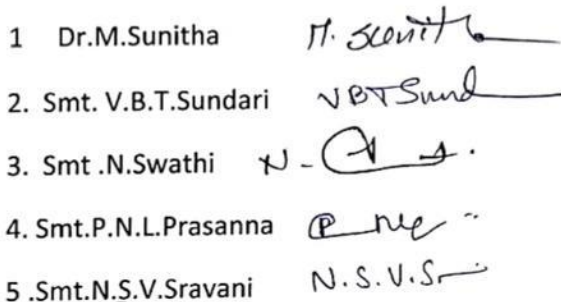 1 Dr.M.Sunitha M. Sunitha
2. Smt. V.B.T.Sundari VBTSund
3. Smt .N.Swathi N-
4. Smt.P.N.L.Prasanna
5 .Smt.N.S.V.Sravani N.S.V.S